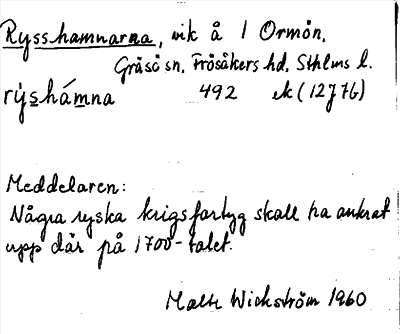 Rysshamnarna, vik å 1 Ormön,
Gräsö sn, Frösåkers hd, Sthlms l.
rýshámna 492 ek (12J7b)
Meddelaren:
Några ryska krigsfartyg skall ha ankrat
upp där på 1700-talet.
Malte Wickström 1960